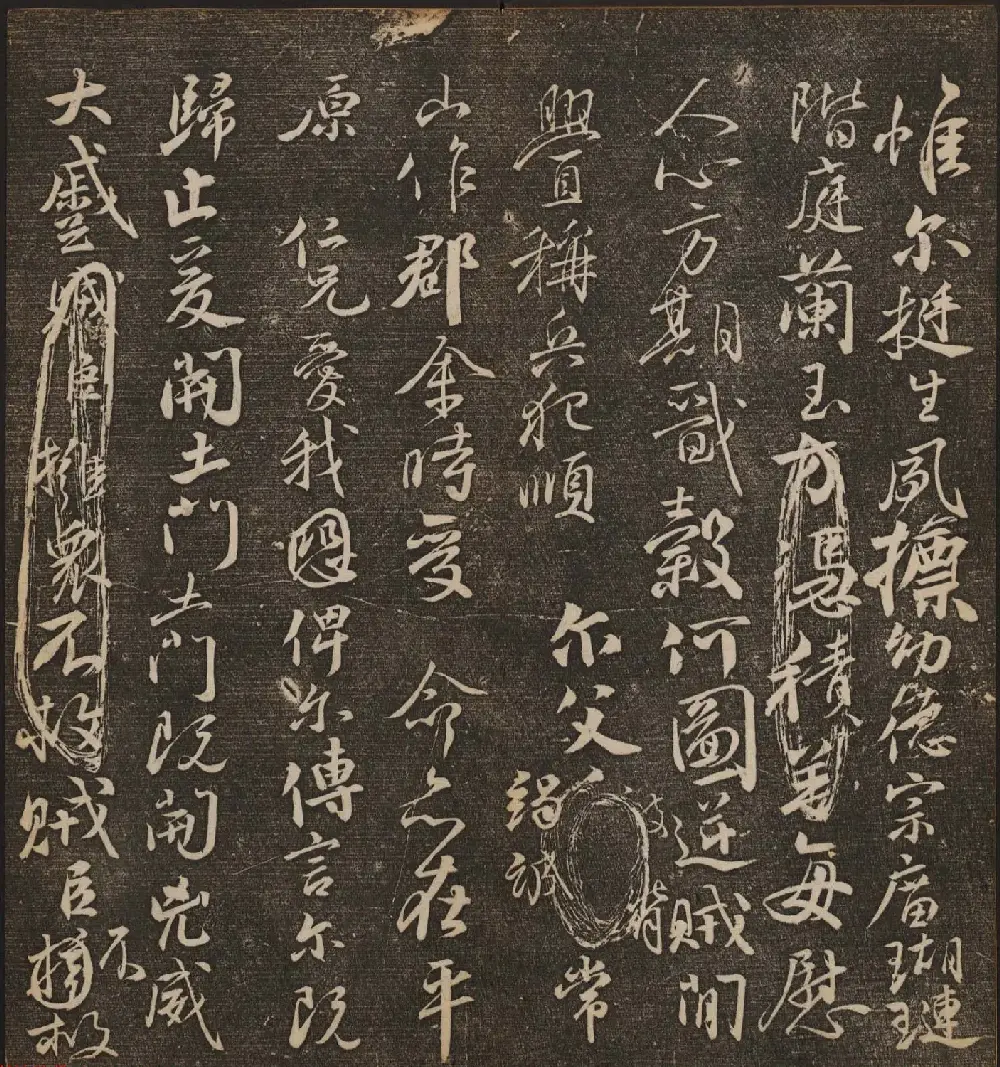 惟尔挺生夙摽幼德宗廟瑚璉
階庭蘭玉方憑積善每慰
人心方期戩穀何圖逆賊閒
舋稱兵犯順 尔父竭誠常
山作郡余時受 命亦在平
原 仁兄愛我俾尔傳言尔既
歸止爰開土門土門既開凶威
大蹙賊臣擁衆不救賊臣不擁救